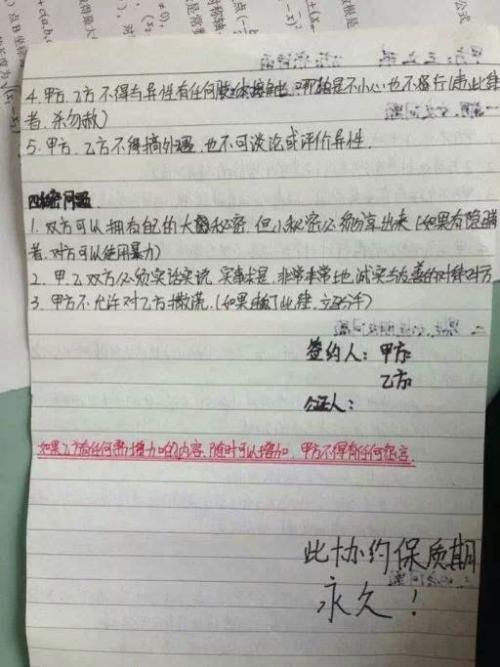 4. 甲方、乙方不得与异性有任何肢体接触,哪怕是不小心也不行(违此律
者,杀勿赦)
5. 甲方、乙方不得搞外遇,也不可谈论或评价异性.
四.秘密问题
1. 双方可以拥有自己的大秘密,但小秘密必须分享出来(如果有隐瞒
者,对方可以使用暴力)
2. 甲、乙双方必须实话实说,实事求是,非常非常地诚实与友善的对待对方
3. 甲方不允许对乙方撒谎.(如果违了此律,立分手)
签约人:甲方:
乙方:
公证人:
如果乙方有任何需要增加的内容,随时可以增加,甲方不得有任何怨言.
此协约保质期
永久!